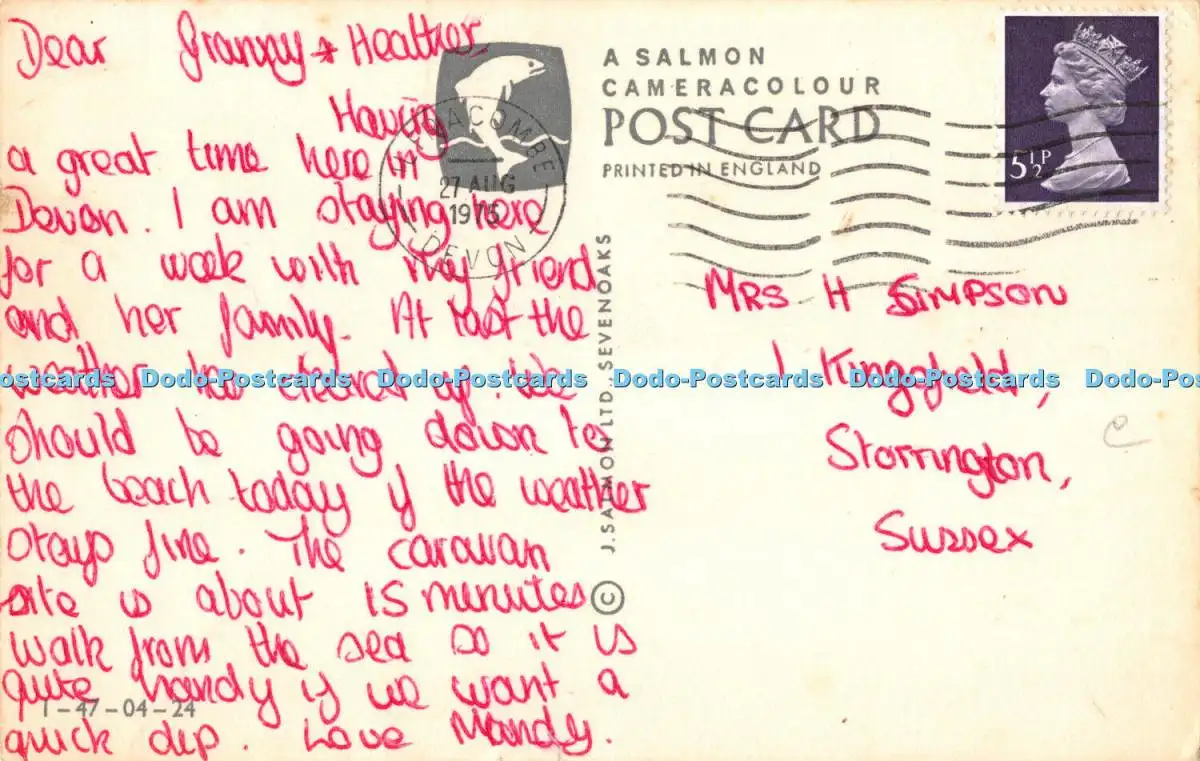 Dear Granny + Heather,
Having
a great time here in
Devon. I am staying here
for a week with my friend
and her family. At last the
weather has cleared up. We
should be going down to
the beach today if the weather
stays fine. The caravan
site is about 15 minutes
walk from the sea so it is
quite handy if we want a
quick dip. Love Mandy.
1-47-04-24
A SALMON
CAMERACOLOUR
POST CARD
PRINTED IN ENGLAND
J. SALMON LTD., SEVENOAKS ©
27 AUG
1975
DEVON
5½P
MRS H SIMPSON
1 Kingsfield,
Storrington,
Sussex
e
postcards Dodo-Postcards Dodo-Postcards Dodo-Postcards Dodo-Postcards Dodo-Post